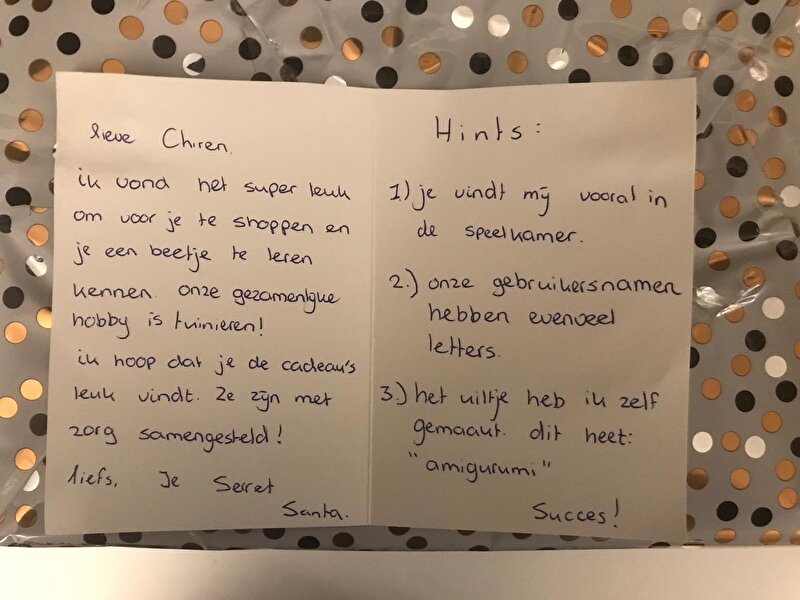 lieve Chiren.
ik vond het super leuk
om voor je te shoppen en
je een beetje te leren
kennen. onze gezamenlijke
hobby is tuinieren!
ik hoop dat je de cadeau's
leuk vindt. Ze zijn met
zorg samengesteld!
liefs, Je Secret
Santa.
Hints:
1) je vindt mij vooral in
de speelkamer.
2.) onze gebruikersnamen
hebben evenveel
letters.
3.) het uiltje heb ik zelf
gemaakt. dit heet:
"amigurumi"
Succes!